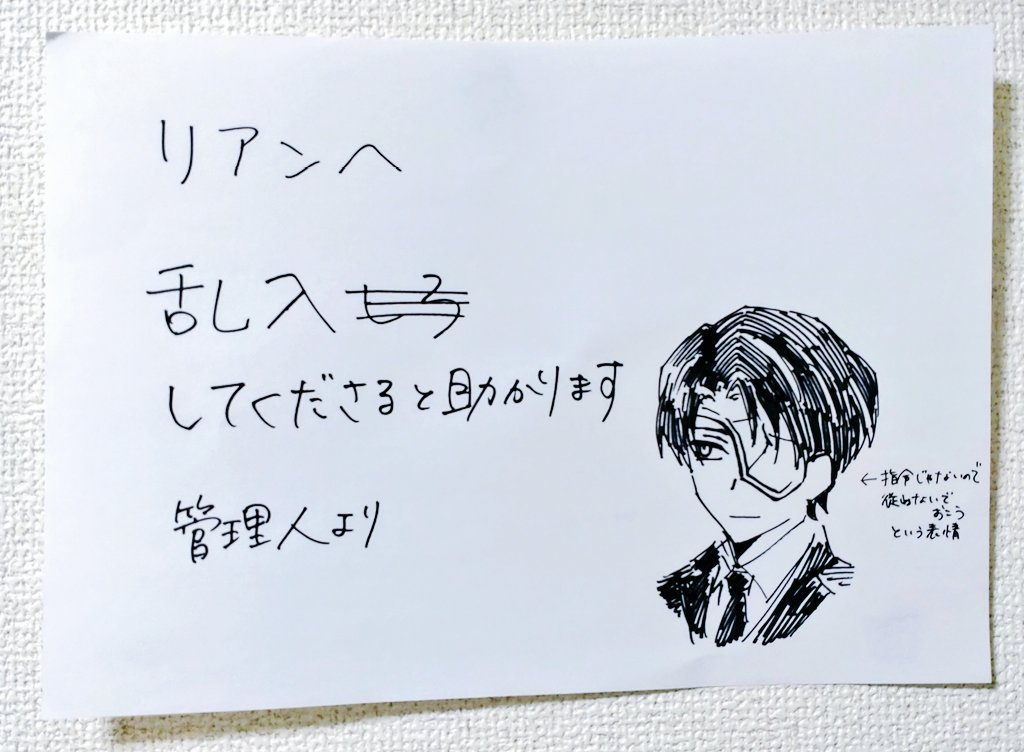 リアンへ
乱入しろ
してくださると助かります
管理人より
←指令じゃないので
従わないで
おこう
という表情